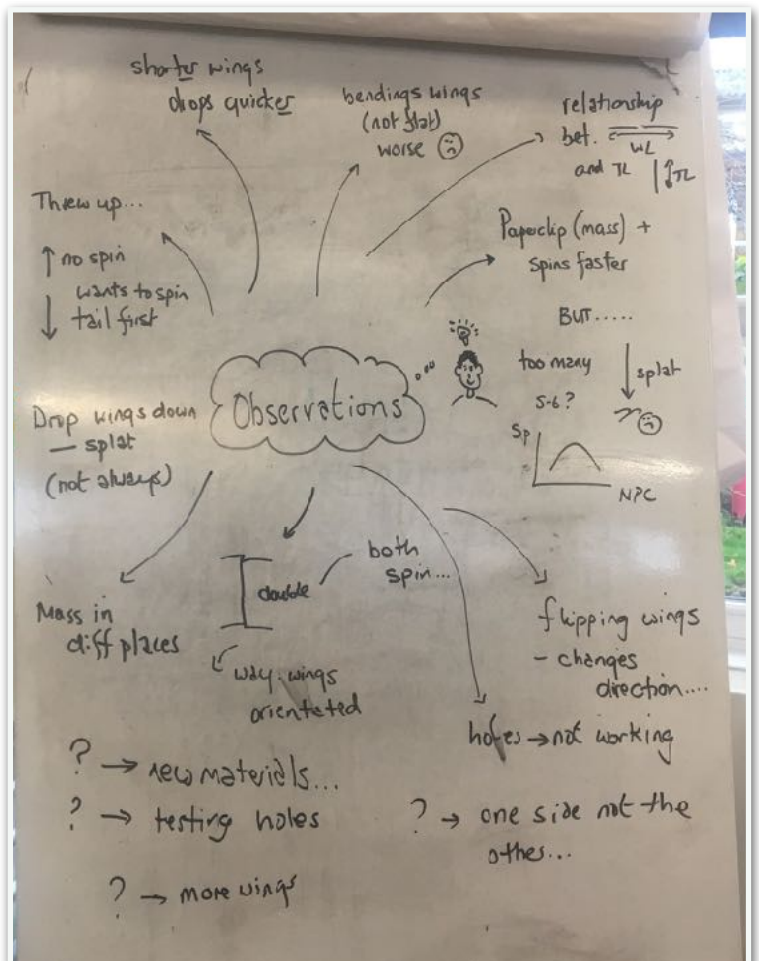 shorter wings
drops quicker
bendings wings
(not flat)
worse
relationship
bet.
WL
and TL
TL
Threw up...
no spin
wants to spin
tail first
Paperclip (mass) +
spins faster
BUT.....
too many
5-6?
splat
Sp
NPC
Observations
Drop wings down
— splat
(not always)
Mass in
diff places
double
both
spin...
way wings
orientated
flipping wings
- changes
direction....
holes → not working
? → new materials...
? → testing holes
? → one side not the
other...
? → more wings